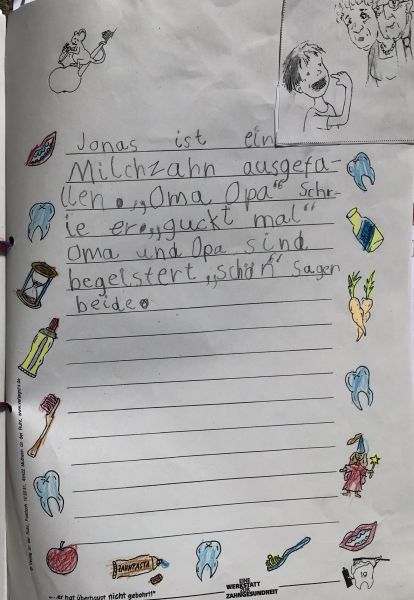 Jonas ist ein
Milchzahn ausgefa-
llen. „Oma Opa“ Schr-
ie er „guckt mal“
Oma und Opa sind
begeistert „schön“ sagen
beide.
ZAHNPASTA
EINE
WERKSTATT
ZUR
ZAHNGESUNDHEIT
19
„...er hat überhaupt nicht gebohrt!“